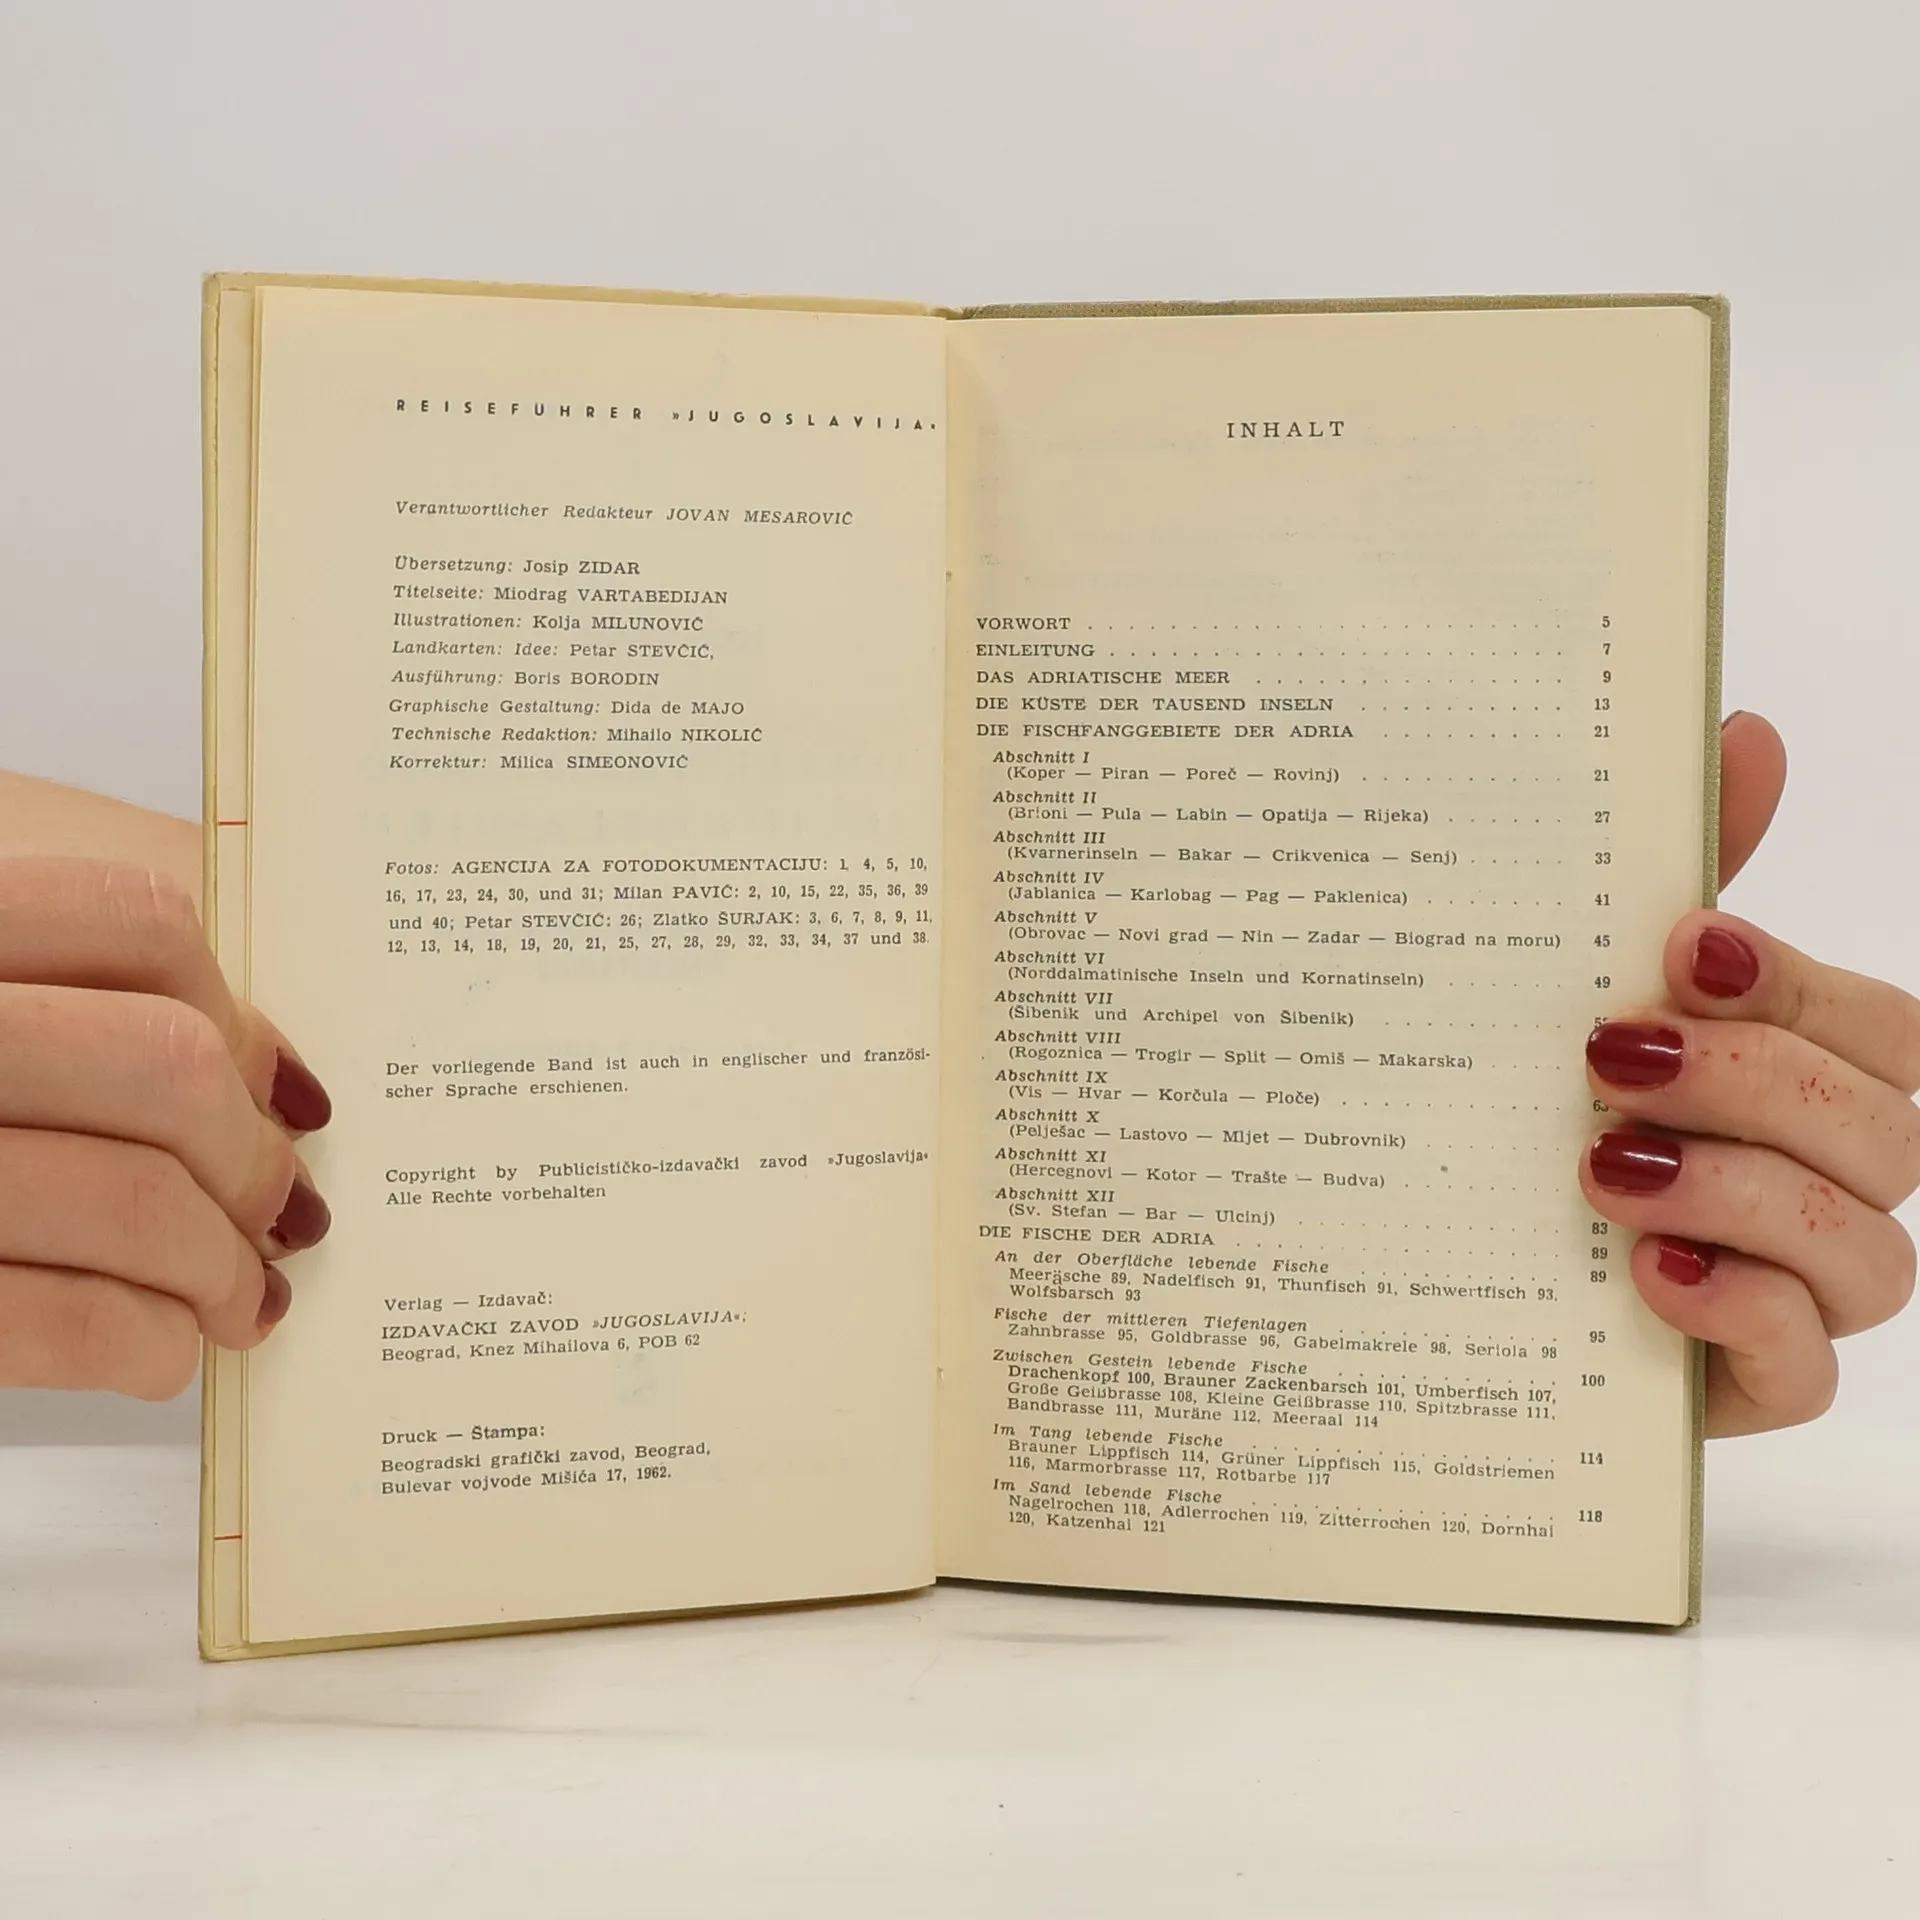 REISEFÜHRER »JUGOSLAVIJA«
Verantwortlicher Redakteur JOVAN MESAROVIĆ
Übersetzung: Josip ZIDAR
Titelseite: Miodrag VARTABEDIJAN
Illustrationen: Kolja MILUNOVIĆ
Landkarten: Idee: Petar STEVČIĆ,
Ausführung: Boris BORODIN
Graphische Gestaltung: Dida de MAJO
Technische Redaktion: Mihailo NIKOLIĆ
Korrektur: Milica SIMEONOVIĆ
Fotos: AGENCIJA ZA FOTODOKUMENTACIJU: 1, 4, 5, 10,
16, 17, 23, 24, 30, und 31; Milan PAVIĆ: 2, 10, 15, 22, 35, 36, 39
und 40; Petar STEVČIĆ: 26; Zlatko ŠURJAK: 3, 6, 7, 8, 9, 11,
12, 13, 14, 18, 19, 20, 21, 25, 27, 28, 29, 32, 33, 34, 37 und 38.
Der vorliegende Band ist auch in englischer und französi-
scher Sprache erschienen.
Copyright by Publicističko-izdavački zavod »Jugoslavija«
Alle Rechte vorbehalten
Verlag — Izdavač:
IZDAVAČKI ZAVOD »JUGOSLAVIJA«;
Beograd, Knez Mihailova 6, POB 62
Druck — Štampa:
Beogradski grafički zavod, Beograd,
Bulevar vojvode Mišića 17, 1962.
INHALT
VORWORT . . . . . . . . . . 5
EINLEITUNG . . . . . . . . . . 7
DAS ADRIATISCHE MEER . . . . . . . . . . 9
DIE KÜSTE DER TAUSEND INSELN . . . . . . . . . . 13
DIE FISCHFANGGEBIETE DER ADRIA . . . . . . . . . 21
Abschnitt I
(Koper — Piran — Poreč — Rovinj) . . . . . . . . . 21
Abschnitt II
(Brioni — Pula — Labin — Opatija — Rijeka) . . . . . . 27
Abschnitt III
(Kvarnerinseln — Bakar — Crikvenica — Senj) . . . . . 33
Abschnitt IV
(Jablanica — Karlobag — Pag — Paklenica) . . . . . . . 41
Abschnitt V
(Obrovac — Novi grad — Nin — Zadar — Biograd na moru) 45
Abschnitt VI
(Norddalmatinische Inseln und Kornatinseln) . . . . . . 49
Abschnitt VII
(Šibenik und Archipel von Šibenik) . . . . . . . . .
Abschnitt VIII
(Rogoznica — Trogir — Split — Omiš — Makarska) . . . .
Abschnitt IX
(Vis — Hvar — Korčula — Ploče) . . . . . . . . . .
Abschnitt X
(Pelješac — Lastovo — Mljet — Dubrovnik) . . . . . . .
Abschnitt XI
(Hercegnovi — Kotor — Trašte — Budva) . . . . . . . .
Abschnitt XII
(Sv. Stefan — Bar — Ulcinj) . . . . . . . . . . 83
DIE FISCHE DER ADRIA . . . . . . . . . . 89
An der Oberfläche lebende Fische . . . . . . . . . . 89
Meeräsche 89, Nadelfisch 91, Thunfisch 91, Schwertfisch 93,
Wolfsbarsch 93
Fische der mittleren Tiefenlagen . . . . . . . . . . 95
Zahnbrasse 95, Goldbrasse 96, Gabelmakrele 98, Seriola 98
Zwischen Gestein lebende Fische . . . . . . . . . . 100
Drachenkopf 100, Brauner Zackenbarsch 101, Umberfisch 107,
Große Geißbrasse 108, Kleine Geißbrasse 110, Spitzbrasse 111,
Bandbrasse 111, Muräne 112, Meeraal 114
Im Tang lebende Fische . . . . . . . . . . 114
Brauner Lippfisch 114, Grüner Lippfisch 115, Goldstriemen
116, Marmorbrasse 117, Rotbarbe 117
Im Sand lebende Fische . . . . . . . . . . 118
Nagelrochen 118, Adlerrochen 119, Zitterrochen 120, Dornhai
120, Katzenhai 121